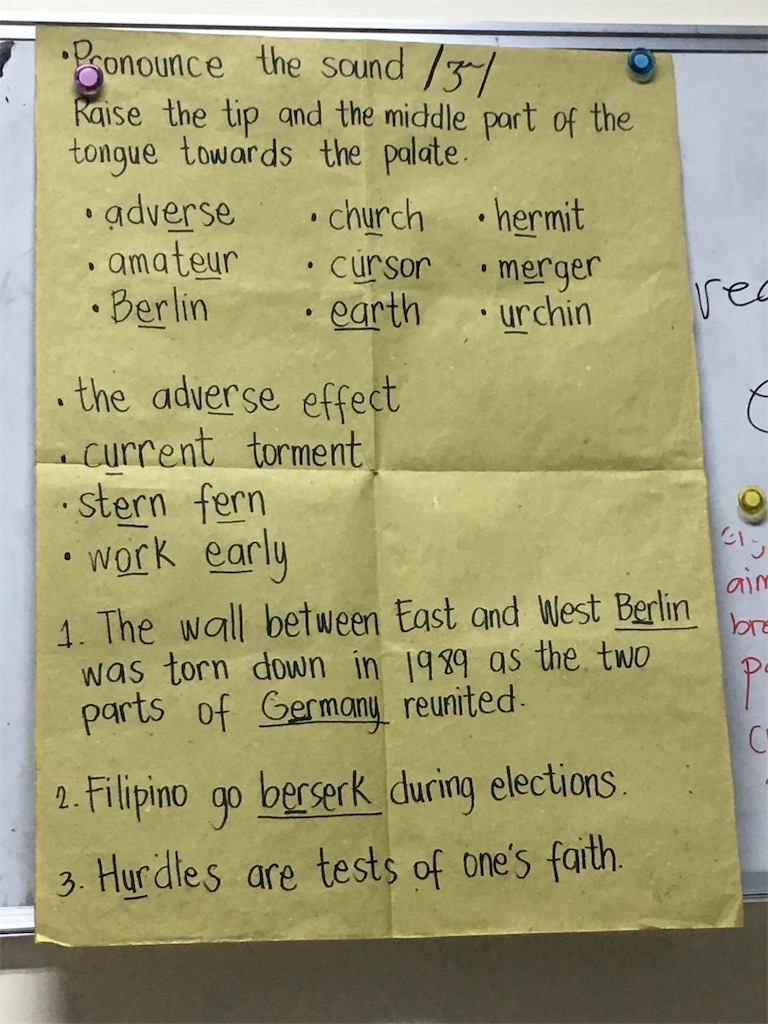 • Pronounce the sound /ɝ/
Raise the tip and the middle part of the
tongue towards the palate.
• adverse • church • hermit
• amateur • cursor • merger
• Berlin • earth • urchin
• the adverse effect
• current torment
• stern fern
• work early
1. The wall between East and West Berlin
was torn down in 1989 as the two
parts of Germany reunited.
2. Filipino go berserk during elections.
3. Hurdles are tests of one's faith.